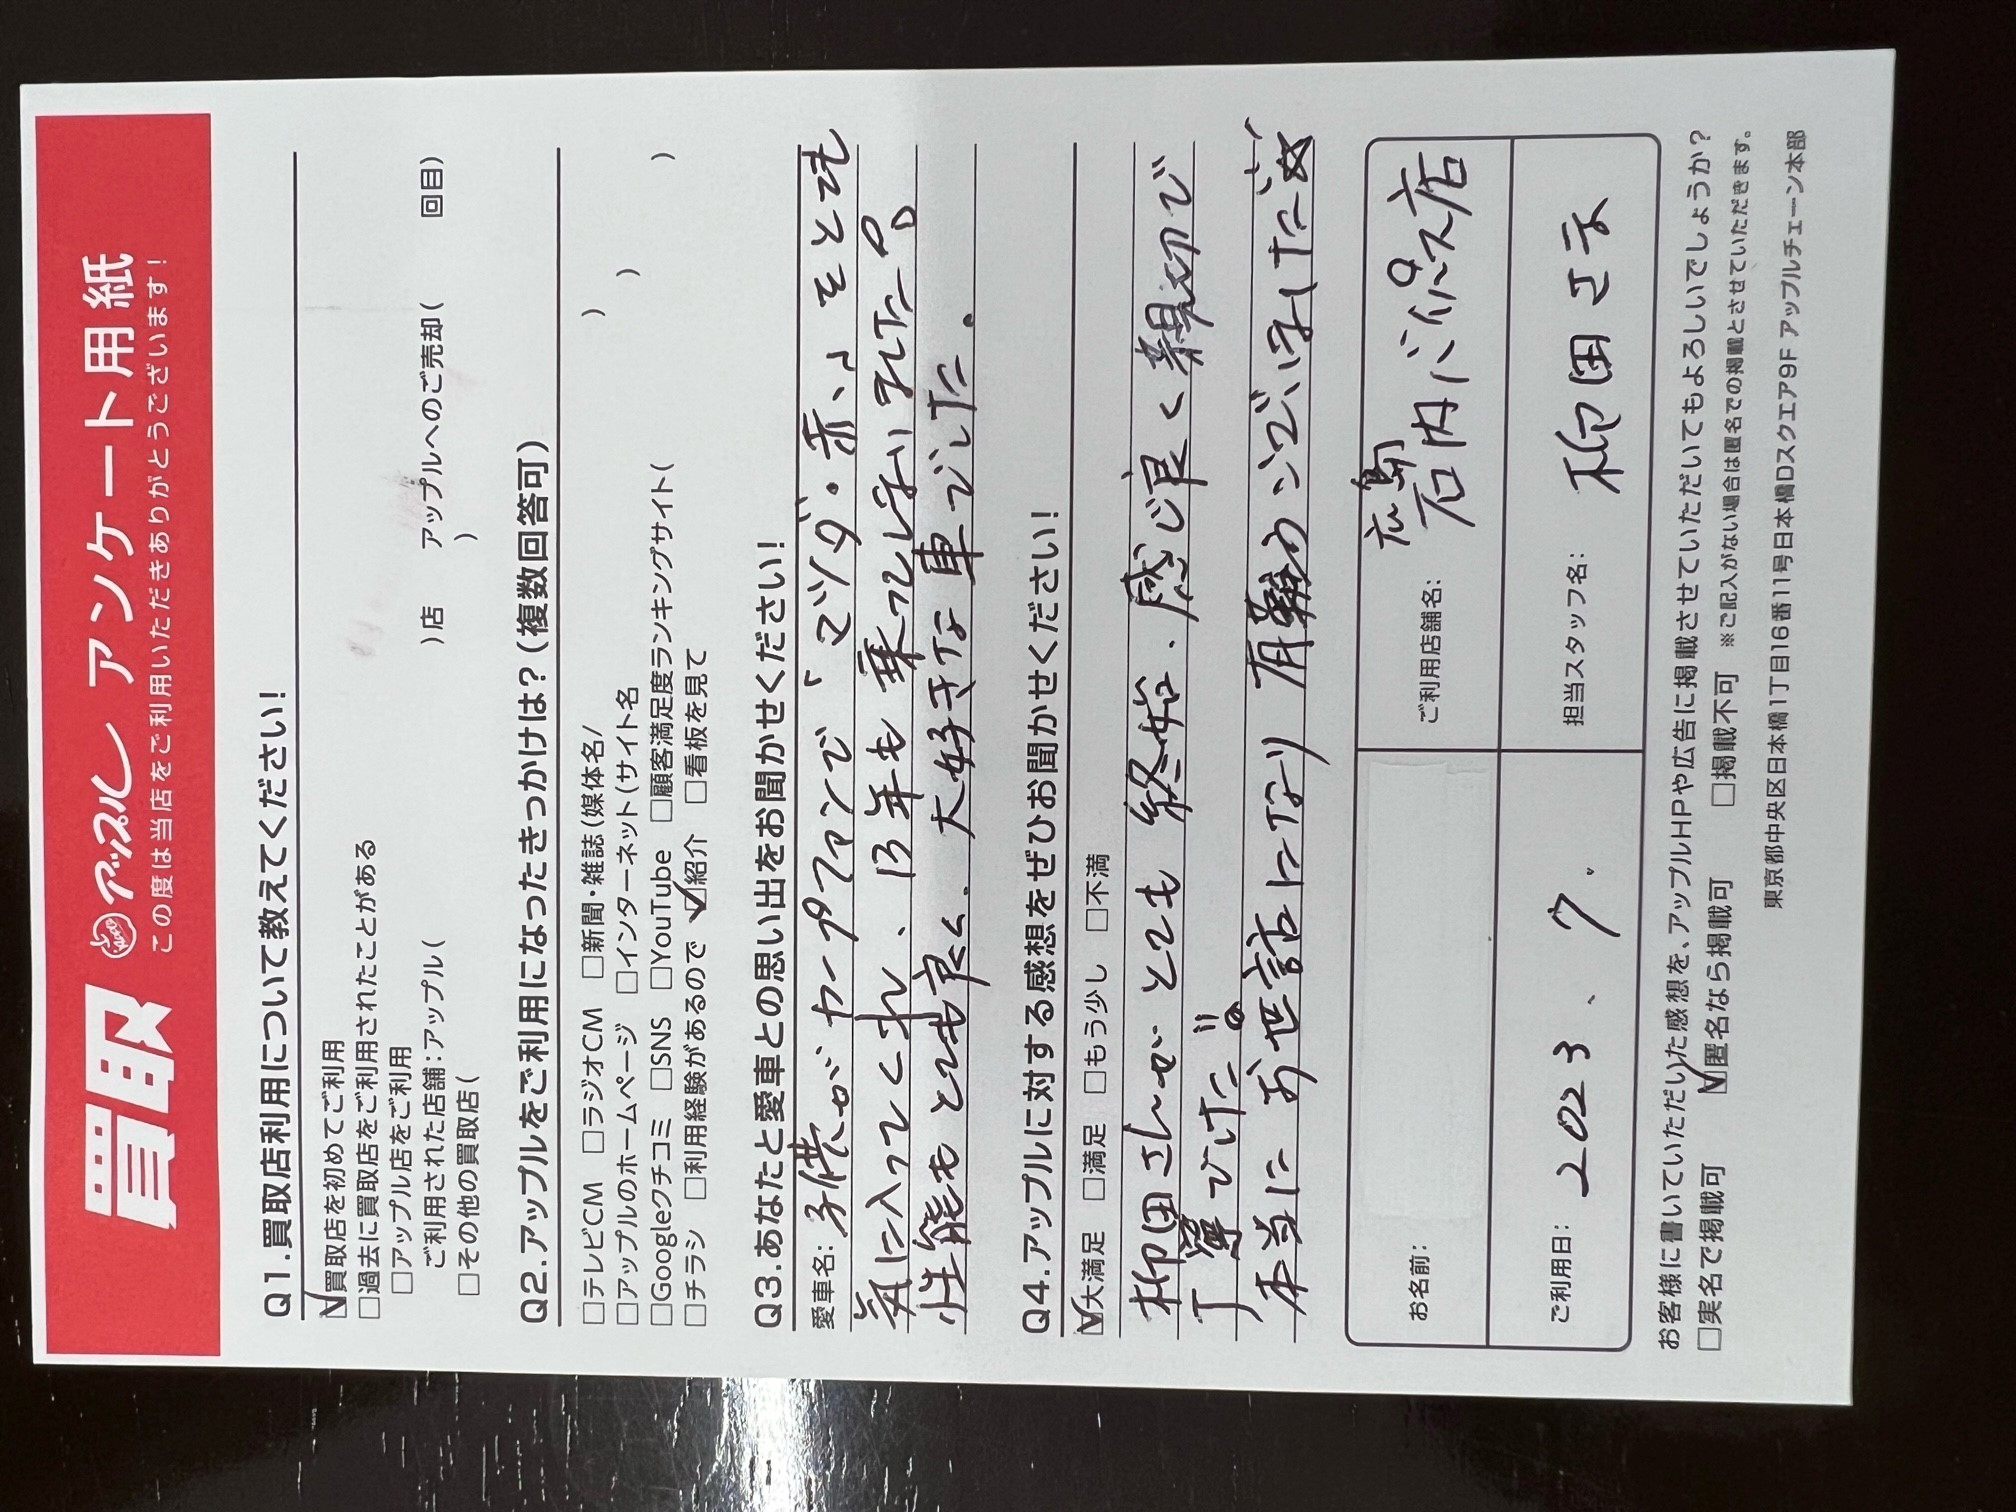 買取 アップル アンケート用紙
この度は当店をご利用いただきありがとうございます！
Q1.買取店利用について教えてください！
☑買取店を初めてご利用
□過去に買取店をご利用されたことがある
□アップル店をご利用
ご利用された店舗：アップル( )店 アップルへのご売却( 回目)
□その他の買取店( )
Q2.アップルをご利用になったきっかけは？(複数回答可)
□テレビCM □ラジオCM □新聞・雑誌(媒体名/ )
□アップルのホームページ □インターネット(サイト名 )
□Googleクチコミ □SNS □YouTube □顧客満足度ランキングサイト( )
□チラシ □利用経験があるので ☑紹介 □看板を見て
Q3.あなたと愛車との思い出をお聞かせください！
愛車名: 子供がカープファンで「マツダ・赤、」をとても
気に入ってくれ、13年も乗ってしまいました。
性能もとても良く、大好きな車でした.
Q4.アップルに対する感想をぜひお聞かせください！
☑大満足 □満足 □もう少し □不満
柳田さんがとても終始、感じ良く親切で
丁寧でした!!
本当にお世話になり有難うございました
ご利用店舗名: 広島岩内バイパス店
お名前:
担当スタッフ名: 柳田さま
ご利用日: 2023、7.
お客様に書いていただいた感想を、アップルHPや広告に掲載させていただいてもよろしいでしょうか？
□実名で掲載可 ☑匿名なら掲載可 □掲載不可 ※ご記入がない場合は匿名での掲載とさせていただきます。
東京都中央区日本橋1丁目16番11号日本橋Dスクエア9F アップルチェーン本部